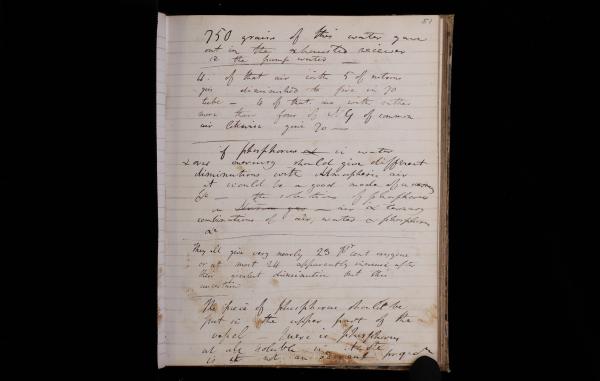 51
750 grains of this water gave
out in the exhausted receiver
& the pump wanted —
4. of that air with 5 of nitrous
gas diminished to five in 20
tube — 4 of that air with rather
more than four of of common
air likewise gave 20 —
if phosphorus in water
& over mercury should give different
diminutions with atmospheric air
it would be a good mode of
&c — the solutions of phosphorus
in — air &
combinations of air, water & phosphorus
&c
They all give very nearly 23 Pr cent oxygene
or at most 24 apparently after
their greatest diminution but this
uncertain
The piece of phosphorus should be
put in the upper part of the
vessel — Quere is phosphorus
at all soluble in
is it not an